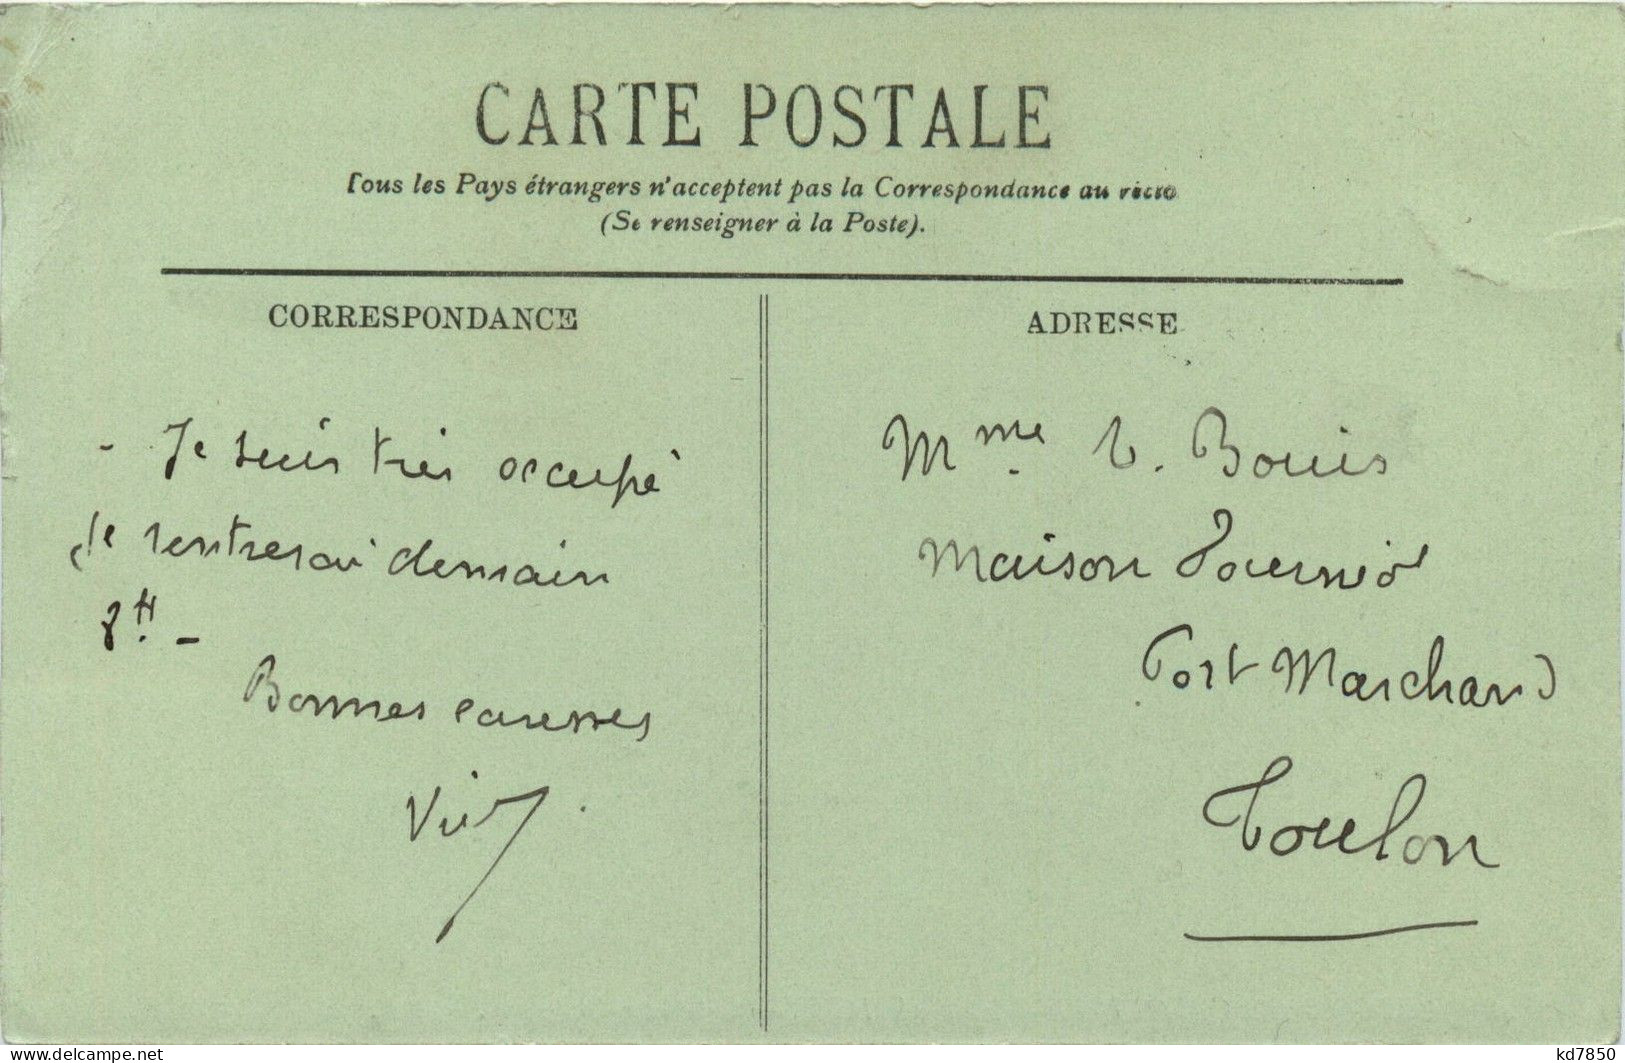 CARTE POSTALE
Tous les Pays étrangers n'acceptent pas la Correspondance au recto
(Se renseigner à la Poste).
CORRESPONDANCE
- Je suis très occupé
Je rentrerai demain
8H. -
Bonnes caresses
ADRESSE
Mme. V. Bouis
Maison
Port Marchand
Toulon
www.delcampe.net
kd7850